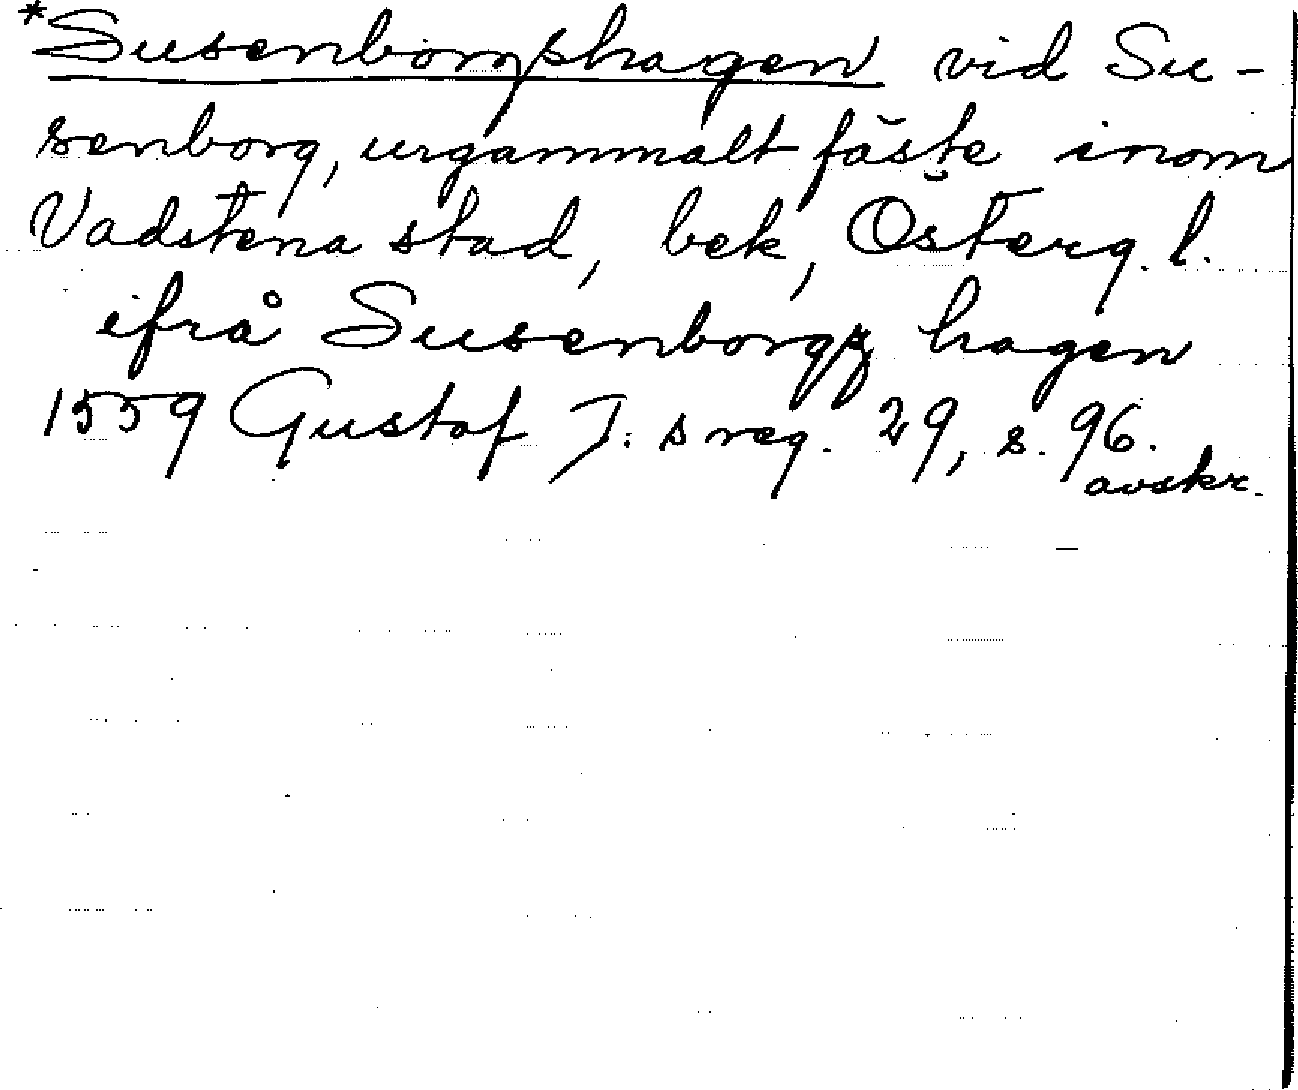 *Susenborgshagen vid Su-
senborg, urgammalt fäste inom
Vadstena stad, bek, Österg. l.
ifrå Susenborgz hagen
1559 Gustaf I:s reg. 29, s. 96.
avskr.